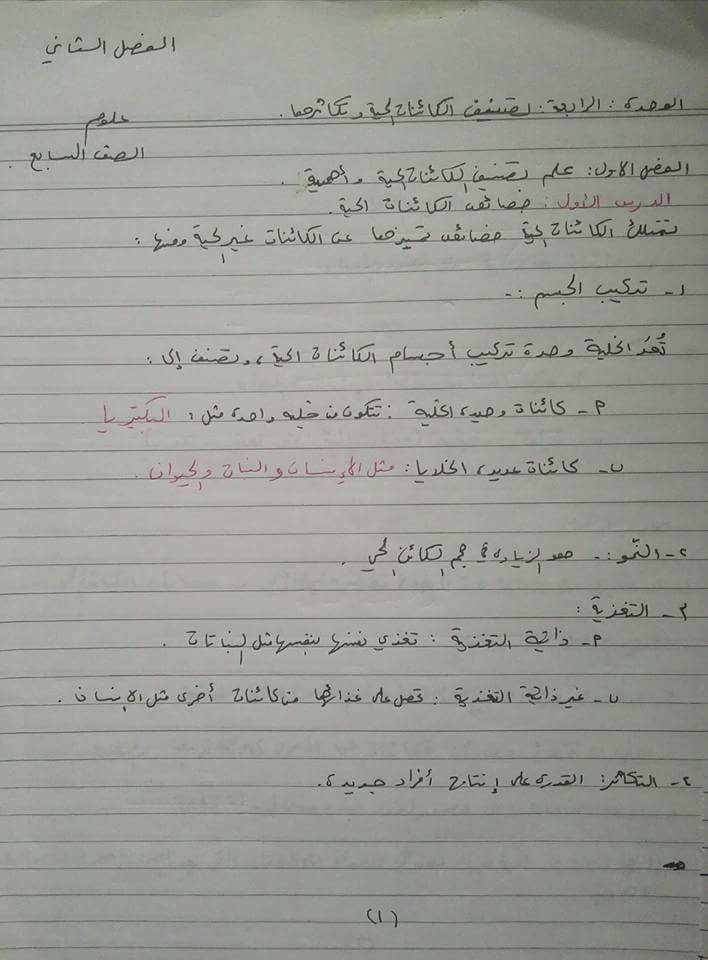 الفصل الثاني
الوحدة الرابعة: تصنيف الكائنات الحية وتكاثرها.
علوم
الصف السابع.
الفصل الاول: علم تصنيف الكائنات الحية وأهمية.
الدرس الأول: خصائص الكائنات الحية.
تمتلك الكائنات الحية خصائص تميزها عن الكائنات غير الحية ومنها:
١- تركيب الجسم :-
تُعدّ الخلية وحدة تركيب أجسام الكائنات الحية، وتصنف إلى:
٩- كائناة وحيدة الخلية: تتكون من خليه واحدة مثل: البكتيريا.
ب- كائناة عديدة الخلايا: مثل الإنسان والنبات والحيوان.
٢- النمّو:- هو الزيادة في حجم الكائن الحي.
٣- التغذية:
٩- ذاتية التغذية: تغذي نفسها بنفسها مثل النباتات.
ب- غير ذاتية التغذية: تحصل على غذائها من كائنات أخرى مثل الإنسان.
٤- التكاثر: القدرة على إنتاج أفراد جديدة.
(١)